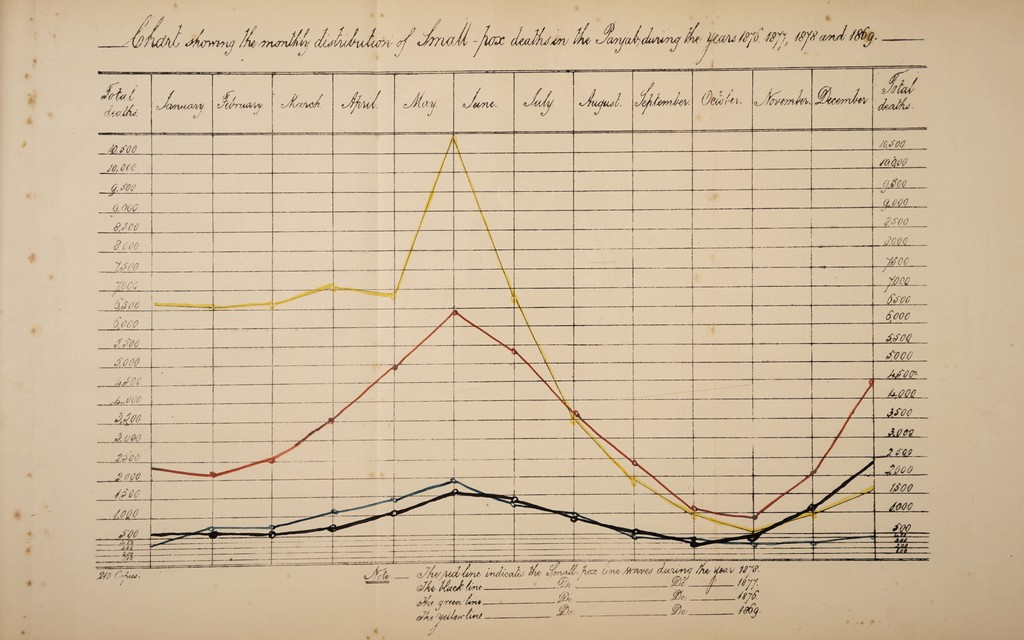 Chart showing the monthly distribution of Small-pox deaths in the Panjab, during the years 1876, 1877, 1878 and 1869.
Total deaths. January February March April. May. June. July. August. September. October. November. December Total deaths.
10,500 10,500
10,000 10,000
9,500 9,500
9,000 9,000
8,500 8,500
8,000 8,000
7,500 7,500
7,000 7,000
6,500 6,500
6,000 6,000
5,500 5,500
5,000 5,000
4,500 4,500
4,000 4,000
3,500 3,500
3,000 3,000
2,500 2,500
2,000 2000
1,500 1500
1,000 1000
500 500
210 Copies.
Note — The red line indicate the Small-pox line waves during the year 1878.
The black line Do. Do. 1877.
The green line Do. Do. 1876.
The yellow line Do. Do. 1869.